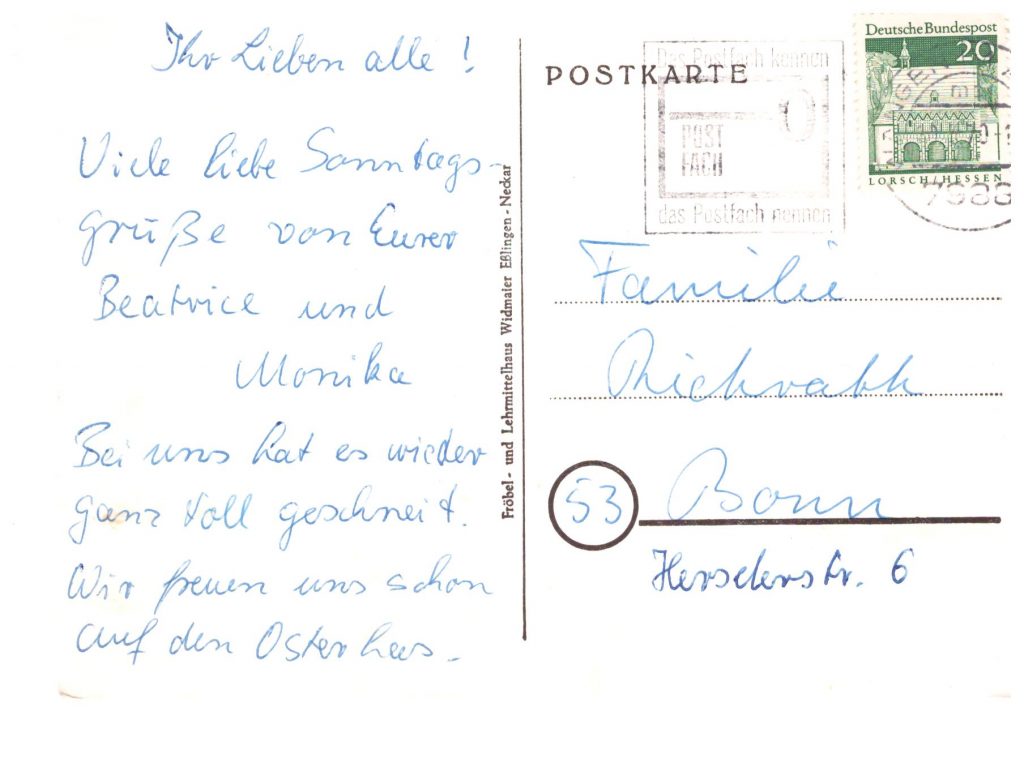 Ihr Lieben alle!
Viele liebe Sonntags-
grüße von Eurer
Beatrice und
Monika
Bei uns hat es wieder
ganz toll geschneit.
Wir freuen uns schon
auf den Osterhas.
Fröbel- und Lehrmittelhaus Widmaier Eßlingen - Neckar
POSTKARTE
Das Postfach kennen
POST
FACH
das Postfach nennen
Deutsche Bundespost
20
LORSCH/HESSEN
Familie
Richrath
53 Bonn
Herselerstr. 6